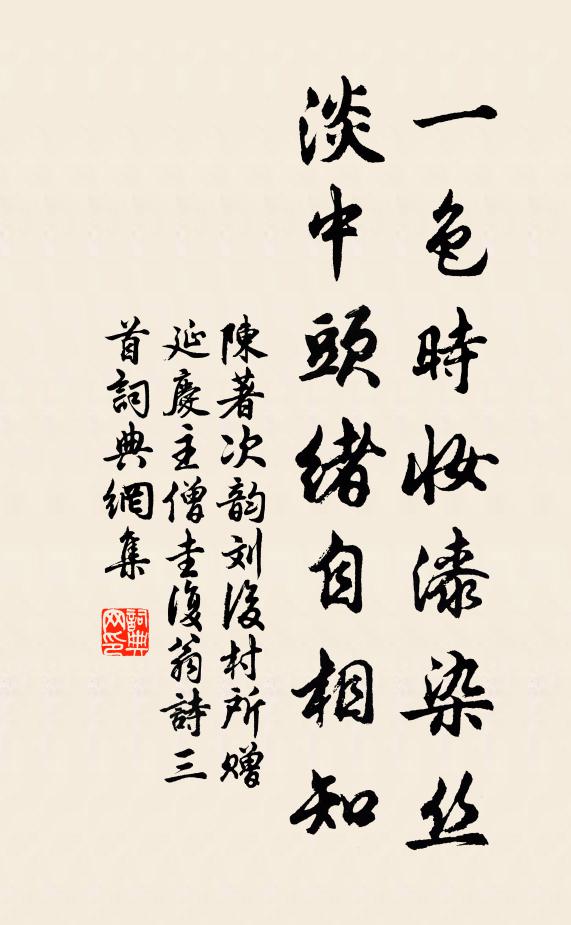 一色時妝漆染丝
淡中頭緒自相知
陳著次韵刘後村所赠
延慶主僧圭復翁詩三
首詞典網集
詞典网印